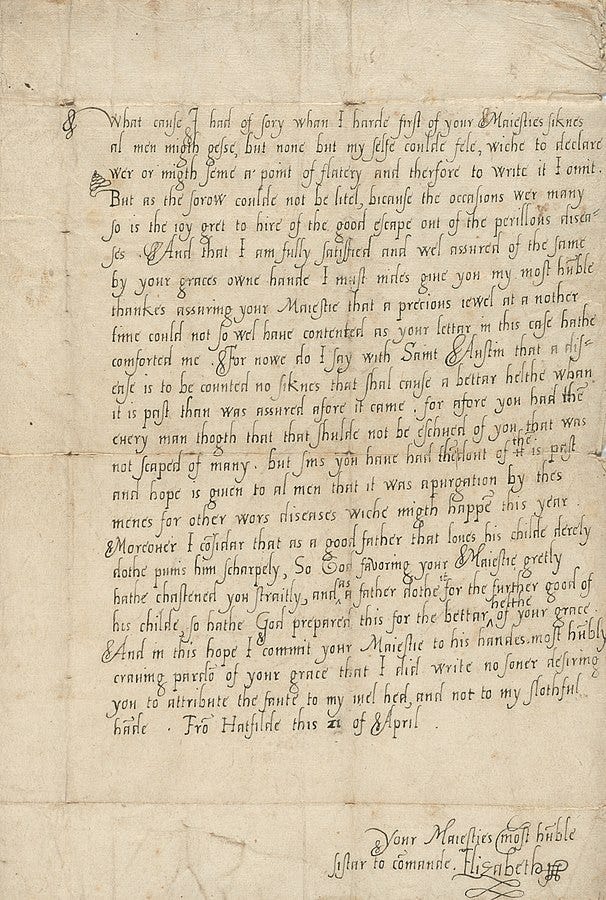 What cause I had of sory whan I harde first of your Maiesties siknes
al men migth gesse, but none but my selfe coulde fele, wiche to declare
wer or migth seme a point of flatery and therfore to write it I omit.
But as the sorow coulde not be litel, bicause the occasions wer many
so is the ioy gret to hire of the good escape out of the perillous disea=
ses. And that I am fully satisfied and wel assured of the same
by your graces owne hande I must nides giue you my most hūble
thankes assuring your Maiestie that a precious iewel at a nother
time could not so wel haue contented as your lettar in this case hathe
comforted me. For nowe do I say with Saint Austin that a dis=
ease is to be counted no siknes that shal cause a bettar helthe whan
it is past than was assured afore it came. for afore you had the
euery man thogth that that shulde not be eschued of you that was
not scaped of many. but sins you haue had the of it is past
and hope is giuen to al men that it was a purgation by thes
menes for other wors diseases wiche migth happē this year.
Moreouer I cōsidar that as a good father that loues his childe derely
dothe punis him scharpely, So God favoring your Maiestie gretly
hathe chastened you straitly, and as a father dothe it for the further good of
his childe, so hathe God prepared this for the bettar helthe of your grace.
And in this hope I commit your Maiestie to his handes. most hūbly
crauing pardō of your grace that I did write no soner desiring
you to attribute the faute to my iuel hed, and not to my slothful
hāde. Frō Hatfilde this 21 of April
Your Maiesties most hūble
sistar to cōmande. Elizabeth